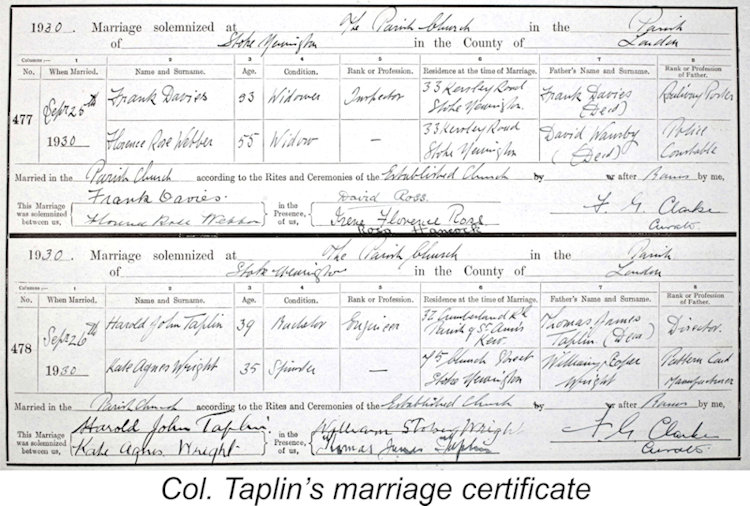 1930. Marriage solemnized at The Parish Church in the Parish
of Stoke Newington in the County of London
Columns :— 1 2 3 4 5 6 7 8
No. When Married. Name and Surname. Age. Condition. Rank or Profession. Residence at the time of Marriage. Father's Name and Surname. Rank or Profession of Father.
477 Sept 25th 1930 Frank Davies 53 Widower Inspector 33 Kersley Road Stoke Newington Frank Davies (Decd) Railway Porter
Florence Rose Webber 55 Widow — 33 Kersley Road Stoke Newington David (Decd) Police Constable
Married in the Parish Church according to the Rites and Ceremonies of the Established Church by or after Banns by me,
This Marriage was solemnized between us, Frank Davies. Florence Rose Webber in the Presence, of us, David Ross. Irene Florence Rose Rosa Hancock F. G. Clarke Curate
1930. Marriage solemnized at The Parish Church in the Parish
of Stoke Newington in the County of London
Columns :— 1 2 3 4 5 6 7 8
No. When Married. Name and Surname. Age. Condition. Rank or Profession. Residence at the time of Marriage. Father's Name and Surname. Rank or Profession of Father.
478 Sept 26th 1930 Harold John Taplin 39 Bachelor Engineer 32 Cumberland Rd Parish of St Anne's Kew. Thomas James Taplin (Decd) Director.
Kate Agnes Wright 35 Spinster — 75 Church Street Stoke Newington William Wright Pattern Card Manufacturer
Married in the Parish Church according to the Rites and Ceremonies of the Established Church by or after Banns by me,
This Marriage was solemnized between us, Harold John Taplin. Kate Agnes Wright. in the Presence of us, William Wright Thomas James Taplin F. G. Clarke Curate.
Col. Taplin's marriage certificate